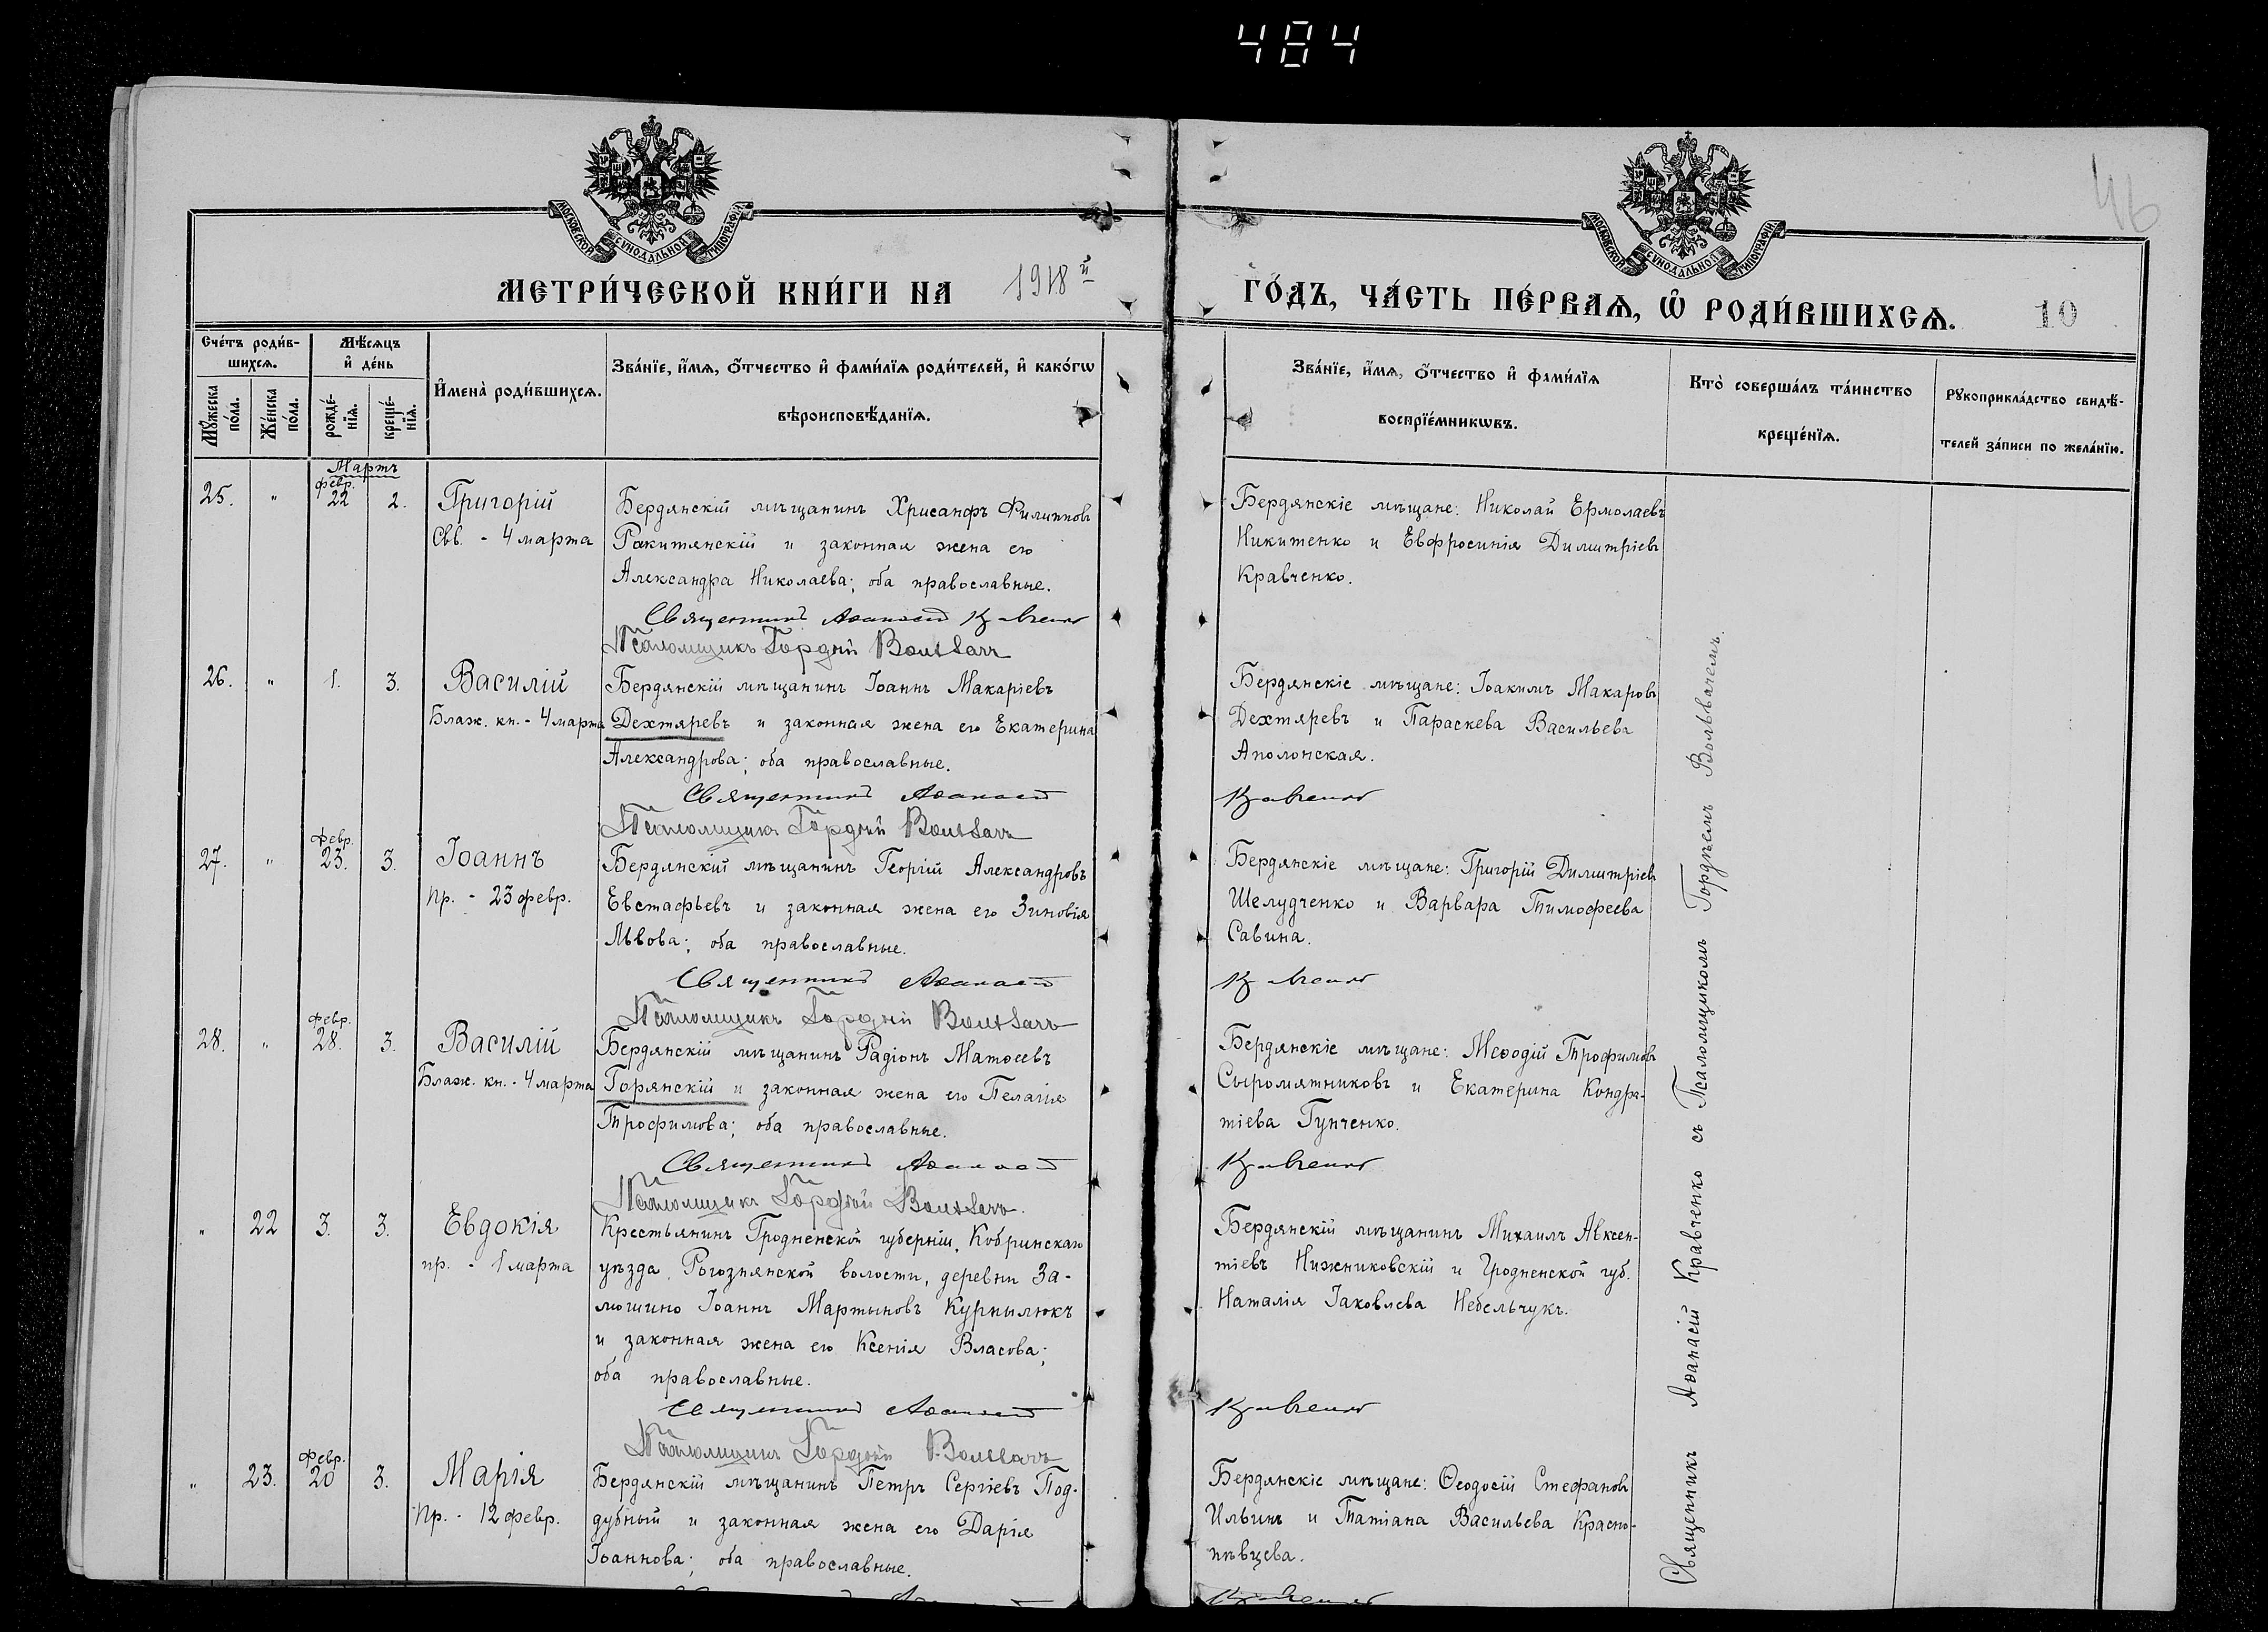 484
46
МОСКОВСКОЙ СУНОДАЛЬНОЙ ТИПОГРАФІИ
МОСКОВСКОЙ СУНОДАЛЬНОЙ ТИПОГРАФІИ
МЕТРИ́ЧЕСКОЙ КНИ́ГИ НА 1918й ГО́ДЪ, ЧА́СТЬ ПЕ́РВАѦ, Ѽ РОДИ́ВШИХСѦ. 10
Сче́тъ роди́в-
шихсѧ.
Мꙋ́жеска по́ла.
Же́нска по́ла.
Мѣ́сяцъ
и҆ де́нь
рожде́-
нїѧ.
креще́-
нїѧ.
И҆мена̀ роди́вшихсѧ.
Зва́нїе, и҆́мѧ, ѻ҆́тчество и҆ фами́лїѧ роди́телей, и҆ како́гѡ
вѣроисповѣ́данїѧ.
Зва́нїе, и҆́мѧ, ѻ҆́тчество и҆ фами́лїѧ
воспрїе́мникѡвъ.
Кто̀ соверша́лъ та́инство
креще́нїѧ.
Рꙋкоприкла́дство свидѣ́-
телей за́писи по жела́нїю.
Мартъ
февр.
25. " 22 2. Григорій
Свв. - 4 марта
Бердянскій мѣщанинъ Хрисанфъ Филипповъ
Ракитянскій и законная жена его
Александра Николаева; оба православные.
Священникъ Аѳанасій Кравченко
Псаломщикъ Гордѣй Вольвачъ
Бердянскіе мѣщане: Николай Ермолаевъ
Никитенко и Евфросинія Димитріева
Кравченко.
26. " 1. 3. Василій
Блаж. кн. - 4 марта
Бердянскій мѣщанинъ Іоаннъ Макаріевъ
Дехтяревъ и законная жена его Екатерина
Александрова; оба православные.
Священникъ Аѳанасій
Псаломщикъ Гордѣй Вольвачъ
Бердянскіе мѣщане: Іоакимъ Макаровъ
Дехтяревъ и Параскева Васильева
Аполонская.
Кравченко
февр.
27. " 23. 3. Іоаннъ
Пр. - 23 февр.
Бердянскій мѣщанинъ Георгій Александровъ
Евстафьевъ и законная жена его Зиновія
Львова; оба православные.
Священникъ Аѳанасій
Псаломщикъ Гордѣй Вольвачъ
Бердянскіе мѣщане: Григорій Димитріевъ
Шелудченко и Варвара Тимофеева
Савина.
Кравченко
февр.
28. " 28. 3. Василій
Блаж. кн. - 4 марта
Бердянскій мѣщанинъ Радіонъ Матѳеевъ
Горянскій и законная жена его Пелагія
Трофимова; оба православные.
Священникъ Аѳанасій
Псаломщикъ Гордѣй Вольвачъ
Бердянскіе мѣщане: Меѳодій Трофимовъ
Сыромятниковъ и Екатерина Кондра-
тіева Гунченко.
Кравченко
" 22 3. 3. Евдокія
пр. - 1 марта
Крестьянинъ Гродненской губерніи, Кобринскаго
уѣзда, Рогознянской волости, деревни За-
мошино Іоаннъ Мартыновъ Курнылюкъ
и законная жена его Ксенія Власова;
оба православные.
Священникъ Аѳанасій
Псаломщикъ Гордѣй Вольвачъ
Бердянскій мѣщанинъ Михаилъ Авксен-
тіевъ Нижниковскій и Гродненской губ.
Наталія Іаковлева Небельчукъ.
Кравченко
февр.
" 23. 20 3. Марія
Пр. - 12 февр.
Бердянскій мѣщанинъ Петръ Сергіевъ Под-
дубный и законная жена его Дарія
Іоаннова; оба православные.
Бердянскіе мѣщане: Ѳеодосій Стефановъ
Ильинъ и Татіана Васильева Красно-
пѣвцева.
Кравченко
Священникъ Аѳанасій Кравченко съ Псаломщикомъ Гордѣемъ Вольвачемъ.